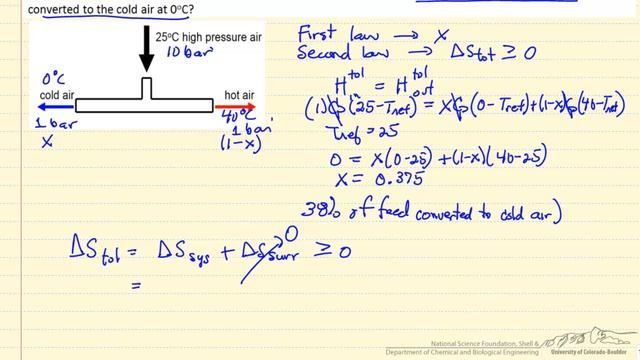 converted to the cold air at 0°C?
25°C high pressure air
10 bar
0°C
cold air
1 bar
X
hot air
40°C
1 bar
(1-x)
First law → X
Second law → ΔStot ≥ 0
H^tot in = H^tot out
(1)Cp(25-Tref) = XCp(0-Tref)+(1-x)Cp(40-Tref)
Tref = 25
0 = X(0-25) + (1-x)(40-25)
X = 0.375
38% of feed converted to cold air)
ΔStot = ΔSsys + ΔSsurr 0 ≥ 0
=
National Science Foundation, Shell &
Department of Chemical and Biological Engineering
University of Colorado-Boulder